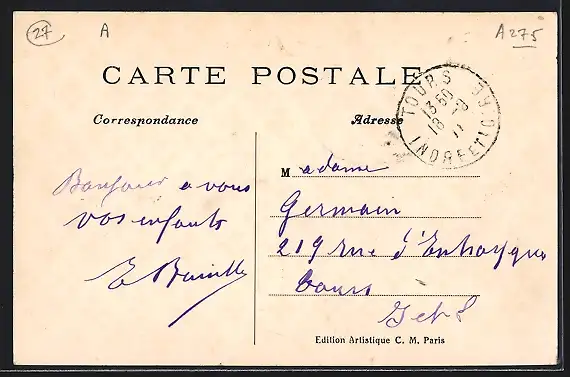 27 A A275
CARTE POSTALE
Correspondance Adresse
TOURS GARE
13 50
18
11
INDRE ET LOIRE
Madame
Bonjour a vous
Germain
vos enfants
219 rue d'Entraygues
E
Tours
I et L
Edition Artistique C. M. Paris